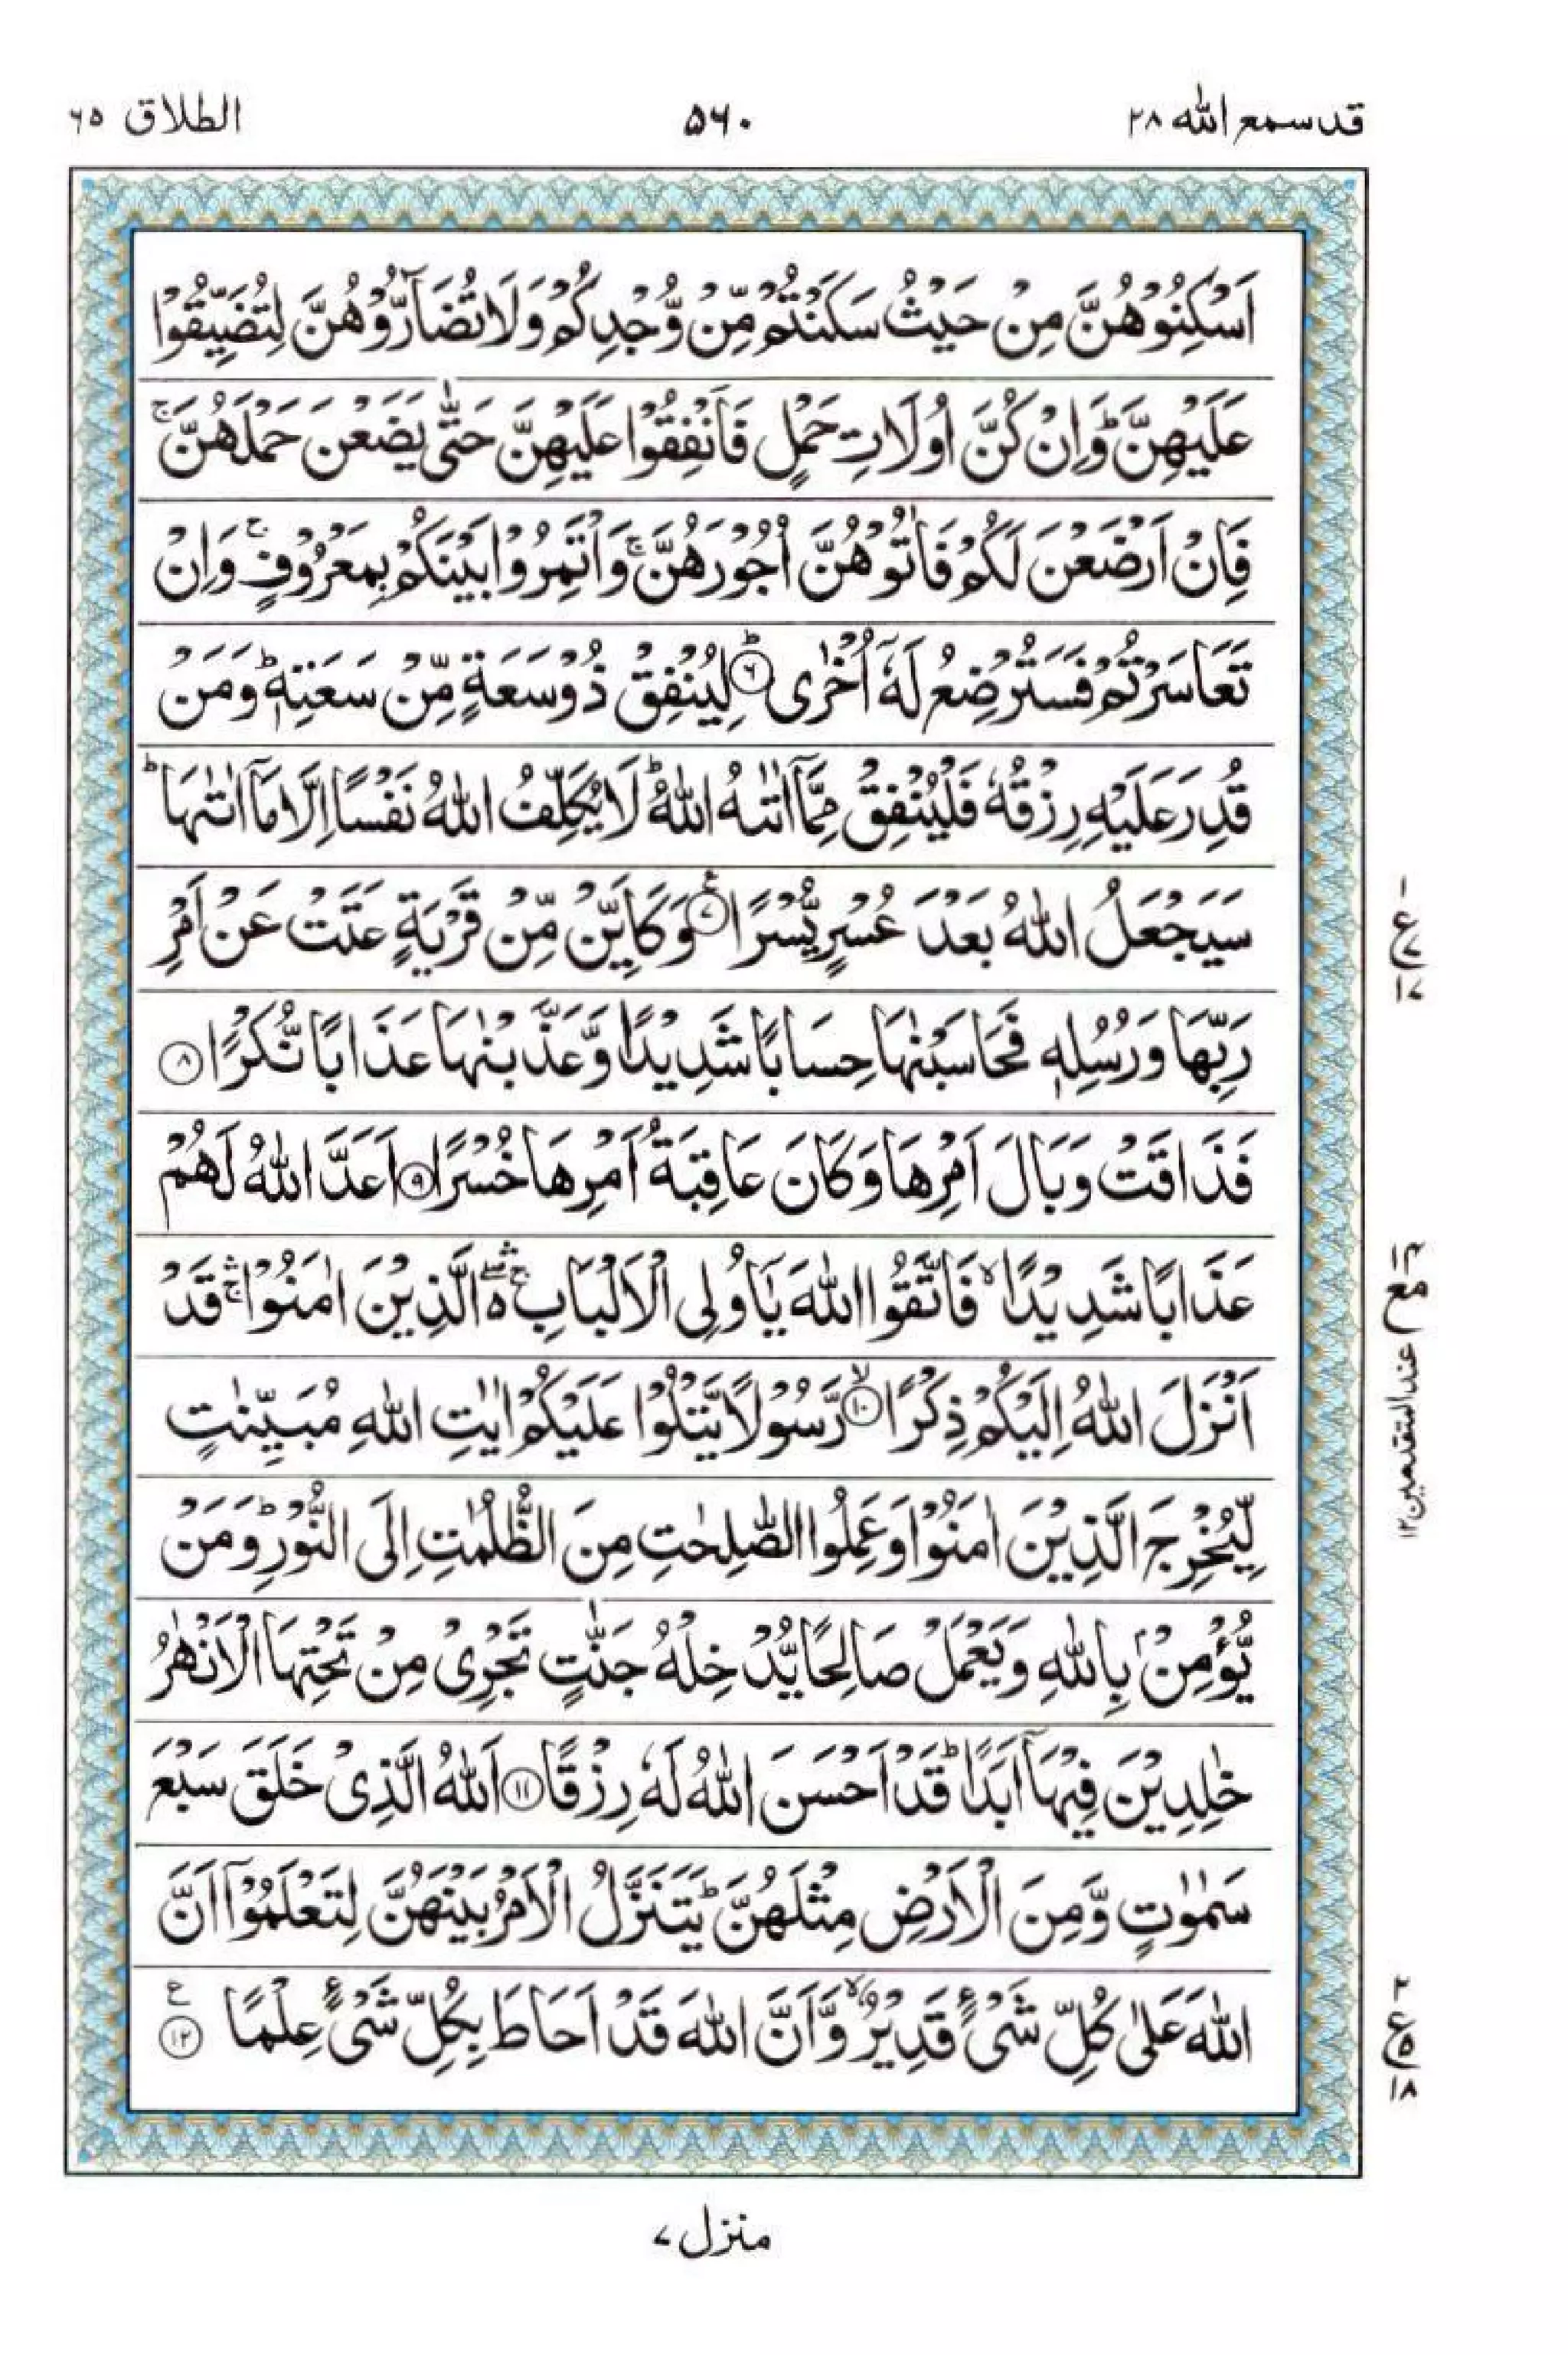 قد سمع الله ۲۸
۵۶۰
الطلاق ۶۵
اَسْكِنُوْهُنَّ مِنْ حَيْثُ سَكَنْتُمْ مِّنْ وُّجْدِكُمْ وَلَا تُضَآرُّوْهُنَّ لِتُضَيِّقُوْا
عَلَيْهِنَّ ؕ وَاِنْ كُنَّ اُولَاتِ حَمْلٍ فَاَنْفِقُوْا عَلَيْهِنَّ حَتّٰى يَضَعْنَ حَمْلَهُنَّ ۚ
فَاِنْ اَرْضَعْنَ لَكُمْ فَاٰتُوْهُنَّ اُجُوْرَهُنَّ ۚ وَاْتَمِرُوْا بَيْنَكُمْ بِمَعْرُوْفٍ ۚ وَاِنْ
تَعَاسَرْتُمْ فَسَتُرْضِعُ لَهٗۤ اُخْرٰى ؕ ۶ لِيُنْفِقْ ذُوْ سَعَةٍ مِّنْ سَعَتِهٖ ؕ وَمَنْ
قُدِرَ عَلَيْهِ رِزْقُهٗ فَلْيُنْفِقْ مِمَّاۤ اٰتٰىهُ اللّٰهُ ؕ لَا يُكَلِّفُ اللّٰهُ نَفْسًا اِلَّا مَاۤ اٰتٰىهَا ؕ
سَيَجْعَلُ اللّٰهُ بَعْدَ عُسْرٍ يُّسْرًا ۷ ع وَكَاَيِّنْ مِّنْ قَرْيَةٍ عَتَتْ عَنْ اَمْرِ
رَبِّهَا وَرُسُلِهٖ فَحَاسَبْنٰهَا حِسَابًا شَدِيْدًا وَّعَذَّبْنٰهَا عَذَابًا نُّكْرًا ۸
فَذَاقَتْ وَبَالَ اَمْرِهَا وَكَانَ عَاقِبَةُ اَمْرِهَا خُسْرًا ۹ اَعَدَّ اللّٰهُ لَهُمْ
عَذَابًا شَدِيْدًا ۙ فَاتَّقُوا اللّٰهَ يٰۤاُولِى الْاَلْبَابِ ۛۚۖ ە الَّذِيْنَ اٰمَنُوْا ۛۚ قَدْ
اَنْزَلَ اللّٰهُ اِلَيْكُمْ ذِكْرًا ۙ ۱۰ رَّسُوْلًا يَّتْلُوْا عَلَيْكُمْ اٰيٰتِ اللّٰهِ مُبَيِّنٰتٍ
لِّيُخْرِجَ الَّذِيْنَ اٰمَنُوْا وَعَمِلُوا الصّٰلِحٰتِ مِنَ الظُّلُمٰتِ اِلَى النُّوْرِ ؕ وَمَنْ
يُّؤْمِنْۢ بِاللّٰهِ وَيَعْمَلْ صَالِحًا يُّدْخِلْهُ جَنّٰتٍ تَجْرِىْ مِنْ تَحْتِهَا الْاَنْهٰرُ
خٰلِدِيْنَ فِيْهَاۤ اَبَدًا ؕ قَدْ اَحْسَنَ اللّٰهُ لَهٗ رِزْقًا ۱۱ اَللّٰهُ الَّذِىْ خَلَقَ سَبْعَ
سَمٰوٰتٍ وَّمِنَ الْاَرْضِ مِثْلَهُنَّ ؕ يَتَنَزَّلُ الْاَمْرُ بَيْنَهُنَّ لِتَعْلَمُوْۤا اَنَّ
اللّٰهَ عَلٰى كُلِّ شَىْءٍ قَدِيْرٌ ۙ وَّاَنَّ اللّٰهَ قَدْ اَحَاطَ بِكُلِّ شَىْءٍ عِلْمًا ۱۲ ع
۱
ع ۷
۱۷
مع
عند المتقدمين ۱۲
۲
ع ۵
۱۸
منزل ۷